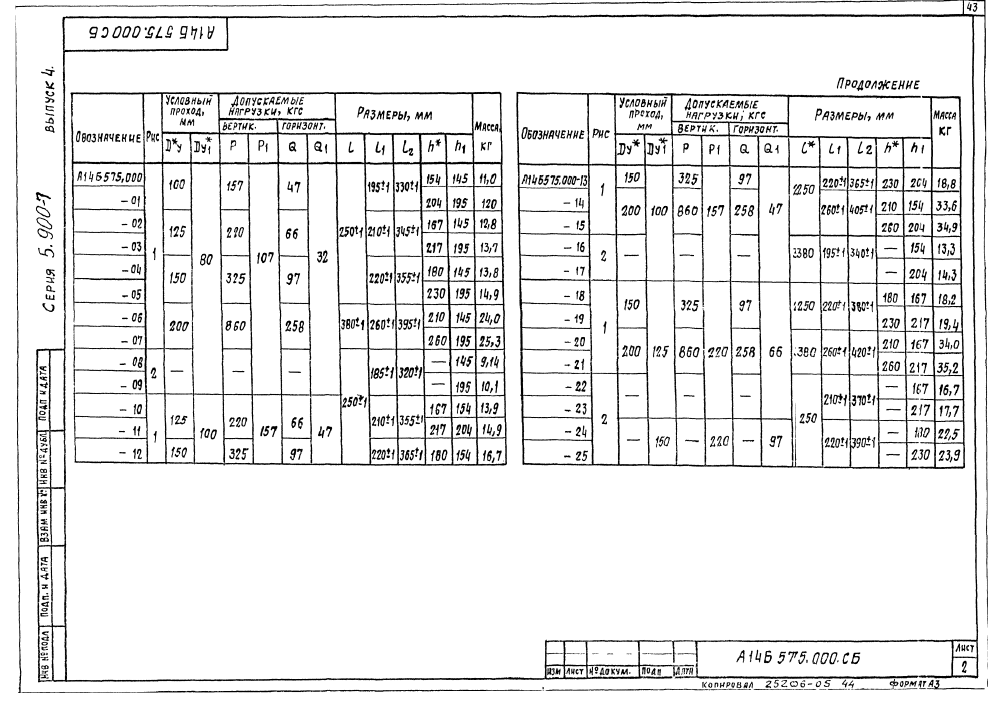 43
А14Б 575.000 СБ
Серия 5.900-7 выпуск 4.
Продолжение
Обозначение Рис Условный проход, мм Допускаемые нагрузки, кгс Размеры, мм Масса, кг
Вертик. Горизонт.
D*у Ду1* P P1 Q Q1 L L1 L2 h* h1
А14Б575.000 1 100 80 157 107 47 32 250±1 195±1 330±1 154 145 11,0
- 01 204 195 120
- 02 125 220 66 210±1 345±1 167 145 12,8
- 03 217 195 13,7
- 04 150 325 97 220±1 355±1 180 145 13,8
- 05 230 195 14,9
- 06 200 860 258 380±1 260±1 395±1 210 145 24,0
- 07 260 195 25,3
- 08 2 — — — 250±1 185±1 320±1 — 145 9,14
- 09 — 195 10,1
- 10 1 125 100 220 157 66 47 210±1 355±1 167 154 13,9
- 11 217 204 14,9
- 12 150 325 97 220±1 365±1 180 154 16,7
Обозначение Рис Условный проход, мм Допускаемые нагрузки, кгс Размеры, мм Масса кг
Вертик. Горизонт.
Ду* Ду1* P P1 Q Q1 L* L1 L2 h* h1
А14Б575.000-13 1 150 100 325 157 97 47 250 220±1 365±1 230 204 18,8
- 14 200 860 258 260±1 405±1 210 154 33,6
- 15 260 204 34,9
- 16 2 — — — 380 195±1 340±1 — 154 13,3
- 17 — 204 14,3
- 18 1 150 125 325 220 97 66 250 220±1 380±1 180 167 18,2
- 19 230 217 19,4
- 20 200 860 258 380 260±1 420±1 210 167 34,0
- 21 260 217 35,2
- 22 2 — — — 250 210±1 370±1 — 167 16,7
- 23 — 217 17,7
- 24 — 150 — 220 — 97 220±1 390±1 — 180 22,5
- 25 — 230 23,9
Инв № подл Подп. и дата Взам инв № Инв № дубл Подп и дата
Изм Лист № докум. Подп Дата
А14Б 575.000.СБ
Лист
2
Копировал 25206-05 44 Формат А3